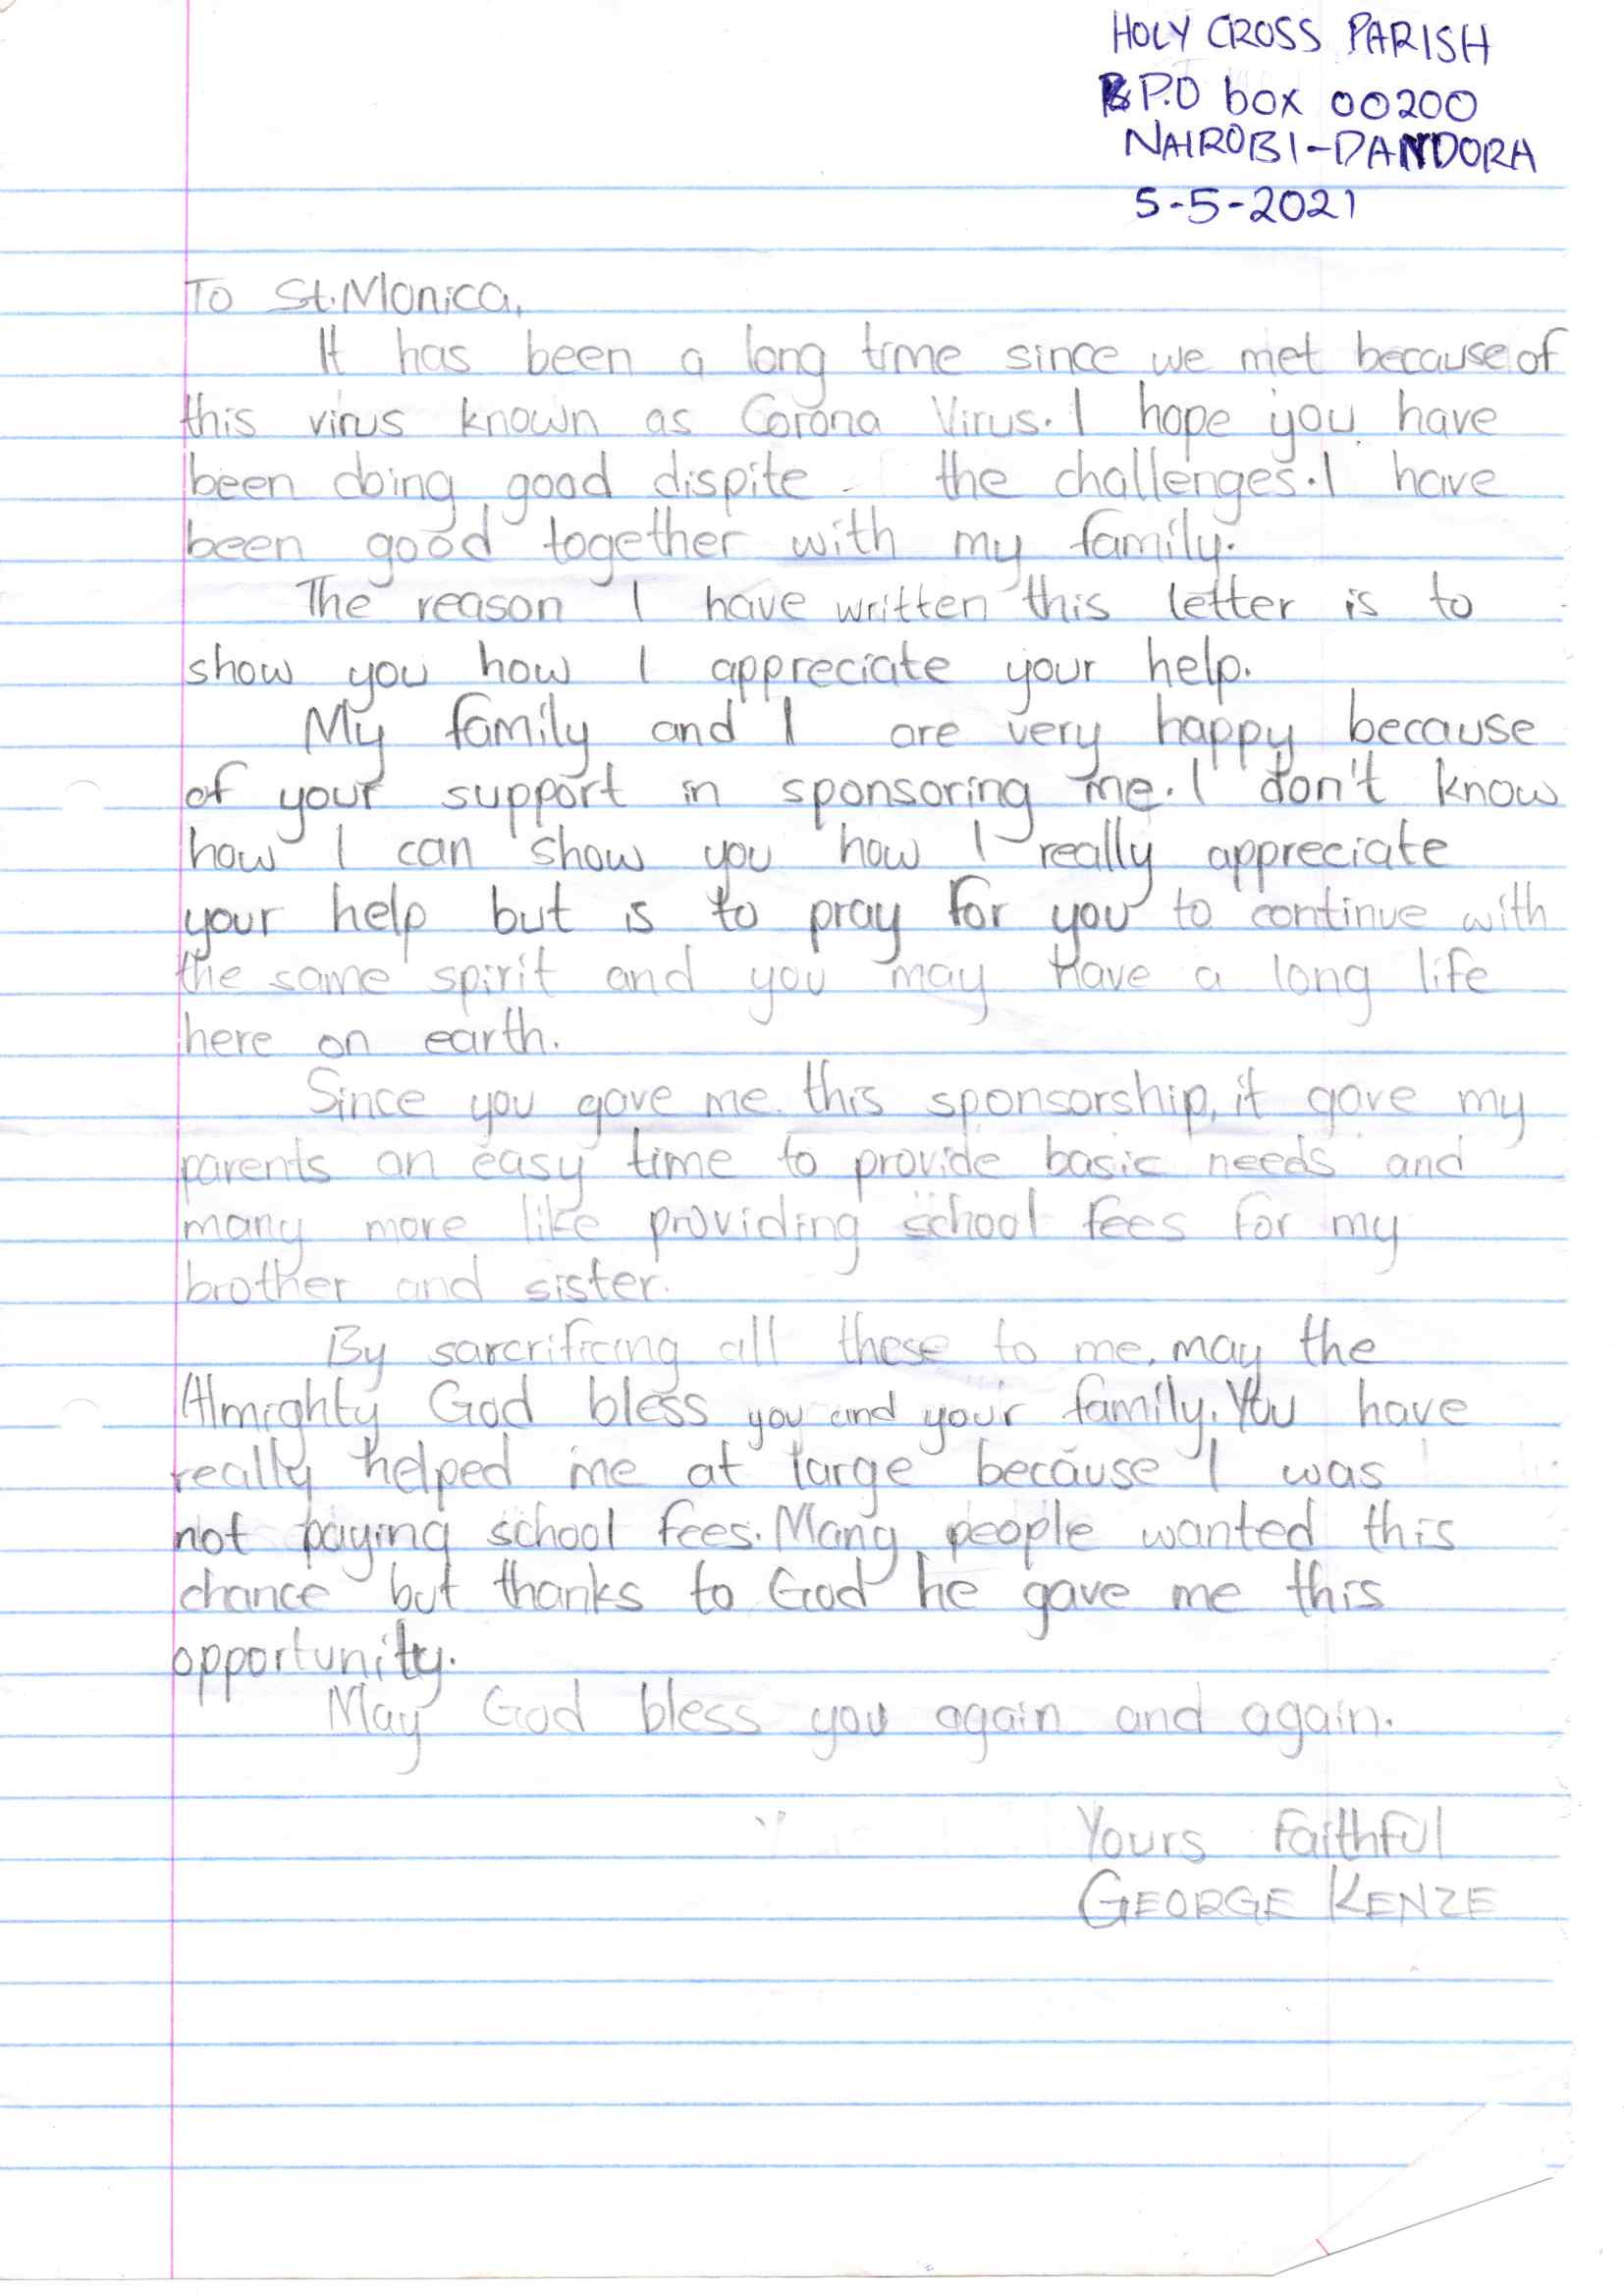 HOLY CROSS PARISH
P.O box 00200
NAIROBI-DANDORA
5-5-2021
To St. Monica,
It has been a long time since we met because of
this virus known as Corona Virus. I hope you have
been doing good dispite the challenges. I have
been good together with my family.
The reason I have written this letter is to
show you how I appreciate your help.
My family and I are very happy because
of your support in sponsoring me. I don't know
how I can show you how I really appreciate
your help but is to pray for you to continue with
the same spirit and you may have a long life
here on earth.
Since you gave me this sponsorship, it gave my
parents an easy time to provide basic needs and
many more like providing school fees for my
brother and sister.
By sarcrificing all these to me, may the
Almighty God bless you and your family. You have
really helped me at large because I was
not paying school fees. Many people wanted this
chance but thanks to God he gave me this
opportunity.
May God bless you again and again.
Yours Faithful
GEORGE KENZE